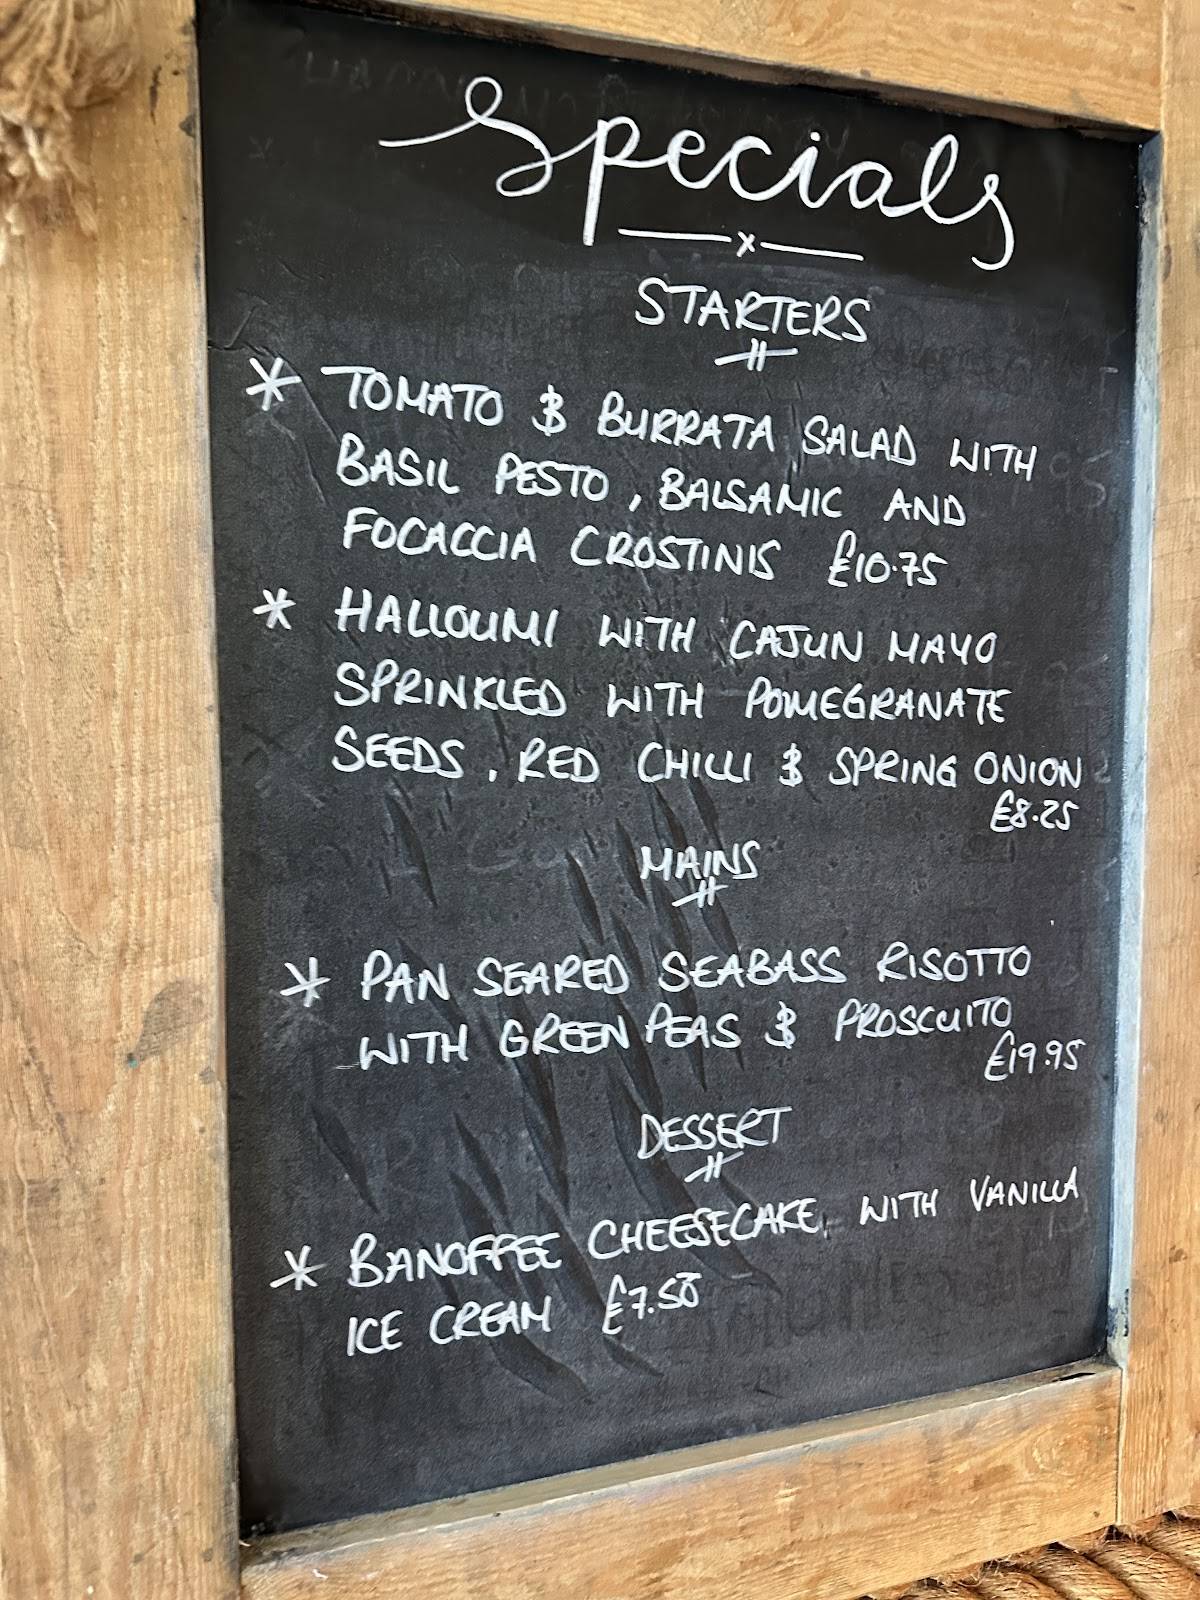 Specials
x
STARTERS
* TOMATO & BURRATA SALAD WITH
BASIL PESTO, BALSAMIC AND
FOCACCIA CROSTINIS £10.75
* HALLOUMI WITH CAJUN MAYO
SPRINKLED WITH POMEGRANATE
SEEDS, RED CHILLI & SPRING ONION
£8.25
MAINS
* PAN SEARED SEABASS RISOTTO
WITH GREEN PEAS & PROSCUITO
£19.95
DESSERT
* BANOFFEE CHEESECAKE, WITH VANILLA
ICE CREAM £7.50